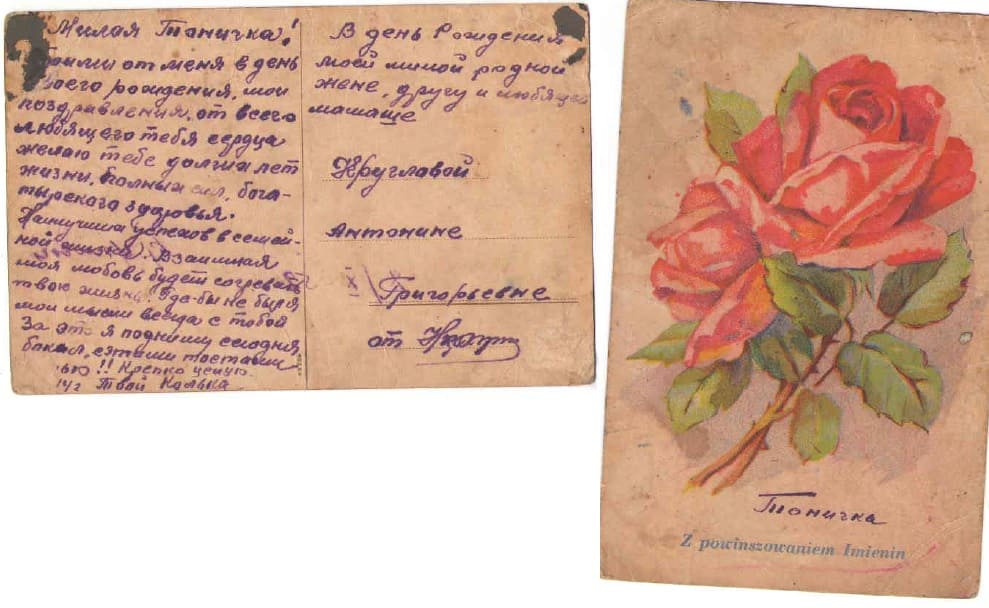 Милая Тоничка!
Прими от меня в день
твоего рождения, мои
поздравления, от всего
любящего тебя сердца
желаю тебе долгих лет
жизни, полных сил, бога-
тырского здоровья.
Наилучших успехов в семей-
ной жизни. Взаимная
моя любовь будет согревать
твою жизнь. Где-бы не был я
мои мысли всегда с тобой
За это я подниму сегодня,
бокал, с этими тостами
пью!! Крепко целую
Твой Колька
В день Рождения
моей милой родной
жене, другу и любящей
мамаше
Кругловой
Антонине
Григорьевне
от
Тоничка
Z powinszowaniem Imienin